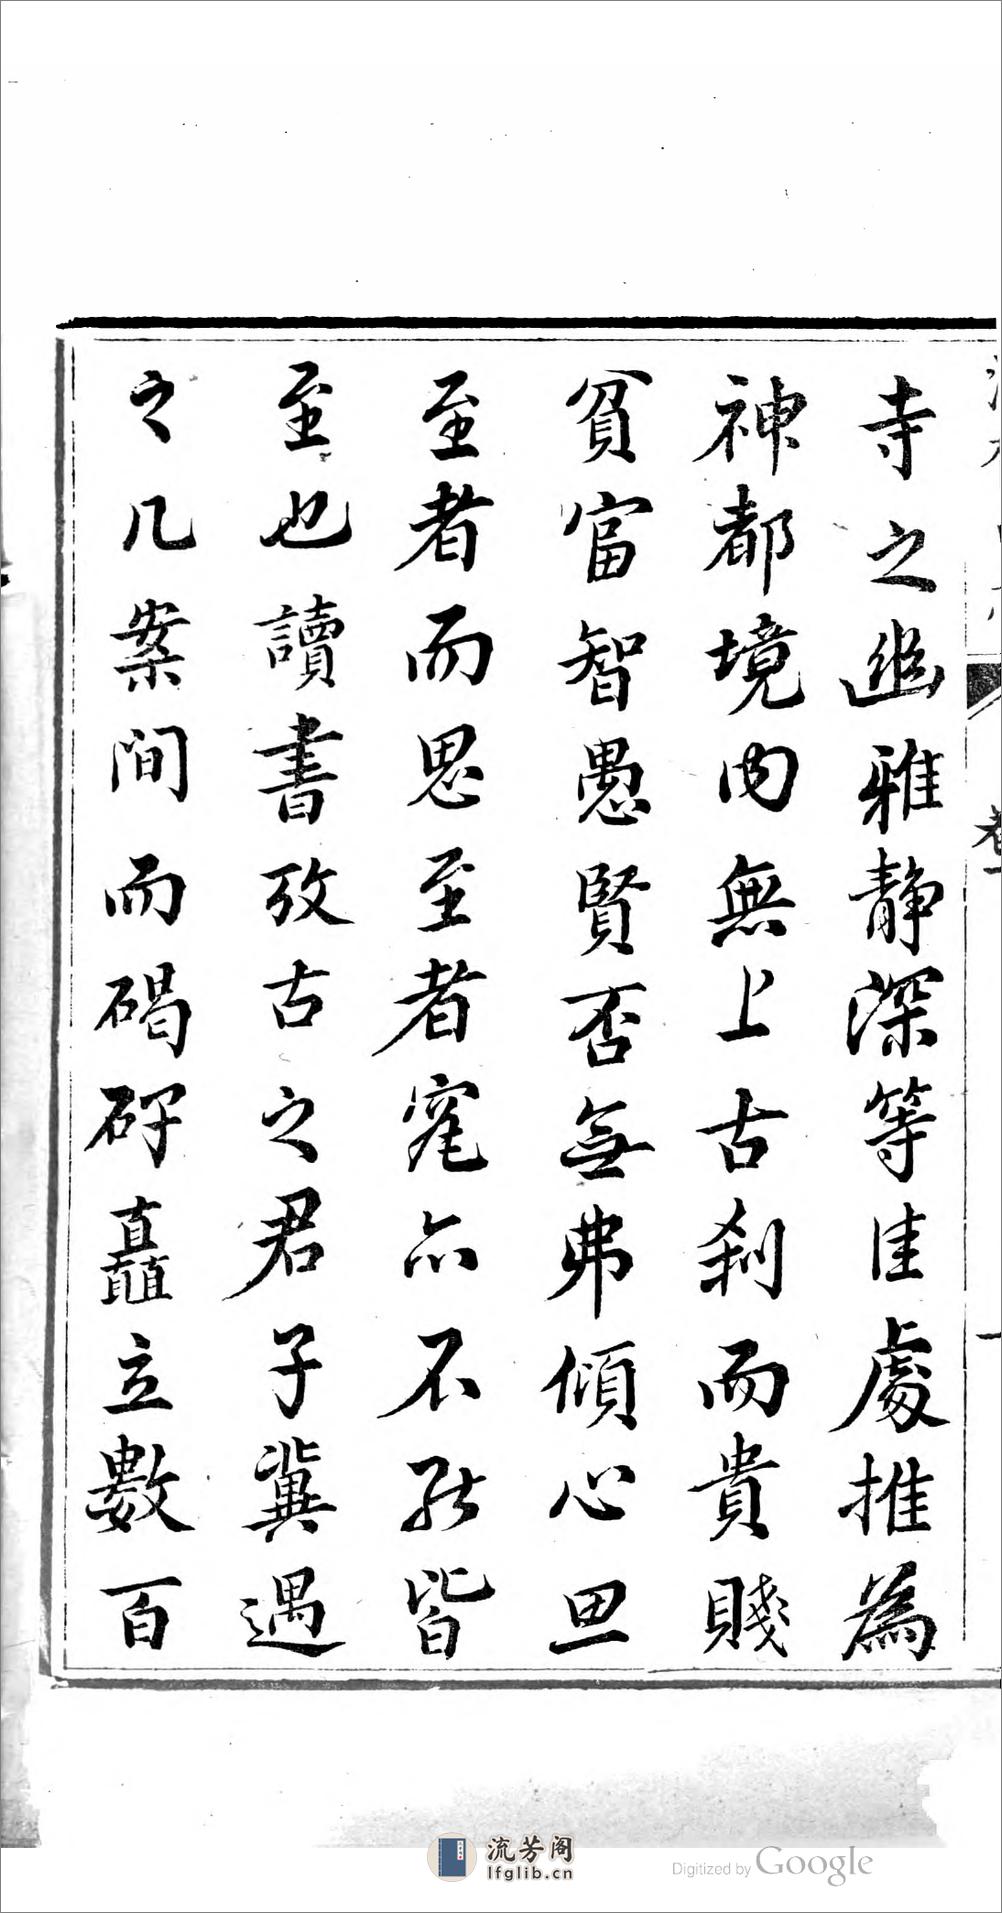 寺之幽雅静深等佳處推為
神都境内無上古刹而貴賤
貧富智愚賢否無弗傾心思
至者而思至者寔亦不能皆
至也讀書攷古之君子冀遇
之几案間而碣碑矗立數百
流芳阁
lfglib.cn
Digitized by Google